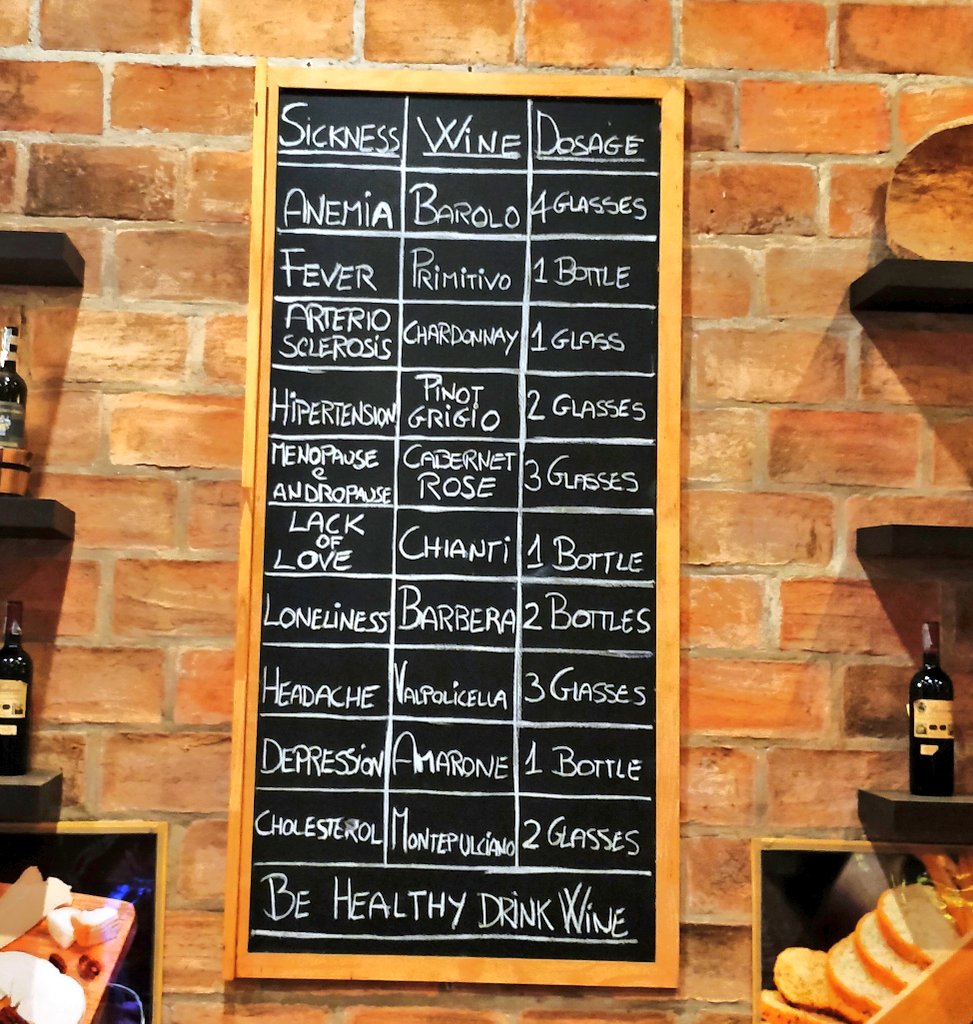 SICKNESS WINE DOSAGE
ANEMIA BAROLO 4 GLASSES
FEVER PRIMITIVO 1 BOTTLE
ARTERIO
SCLEROSIS CHARDONNAY 1 GLASS
HIPERTENSION PINOT
GRIGIO 2 GLASSES
MENOPAUSE
e
ANDROPAUSE CABERNET
ROSE 3 GLASSES
LACK
OF
LOVE CHIANTI 1 BOTTLE
LONELINESS BARBERA 2 BOTTLES
HEADACHE VALPOLICELLA 3 GLASSES
DEPRESSION AMARONE 1 BOTTLE
CHOLESTEROL MONTEPULCIANO 2 GLASSES
BE HEALTHY DRINK WINE